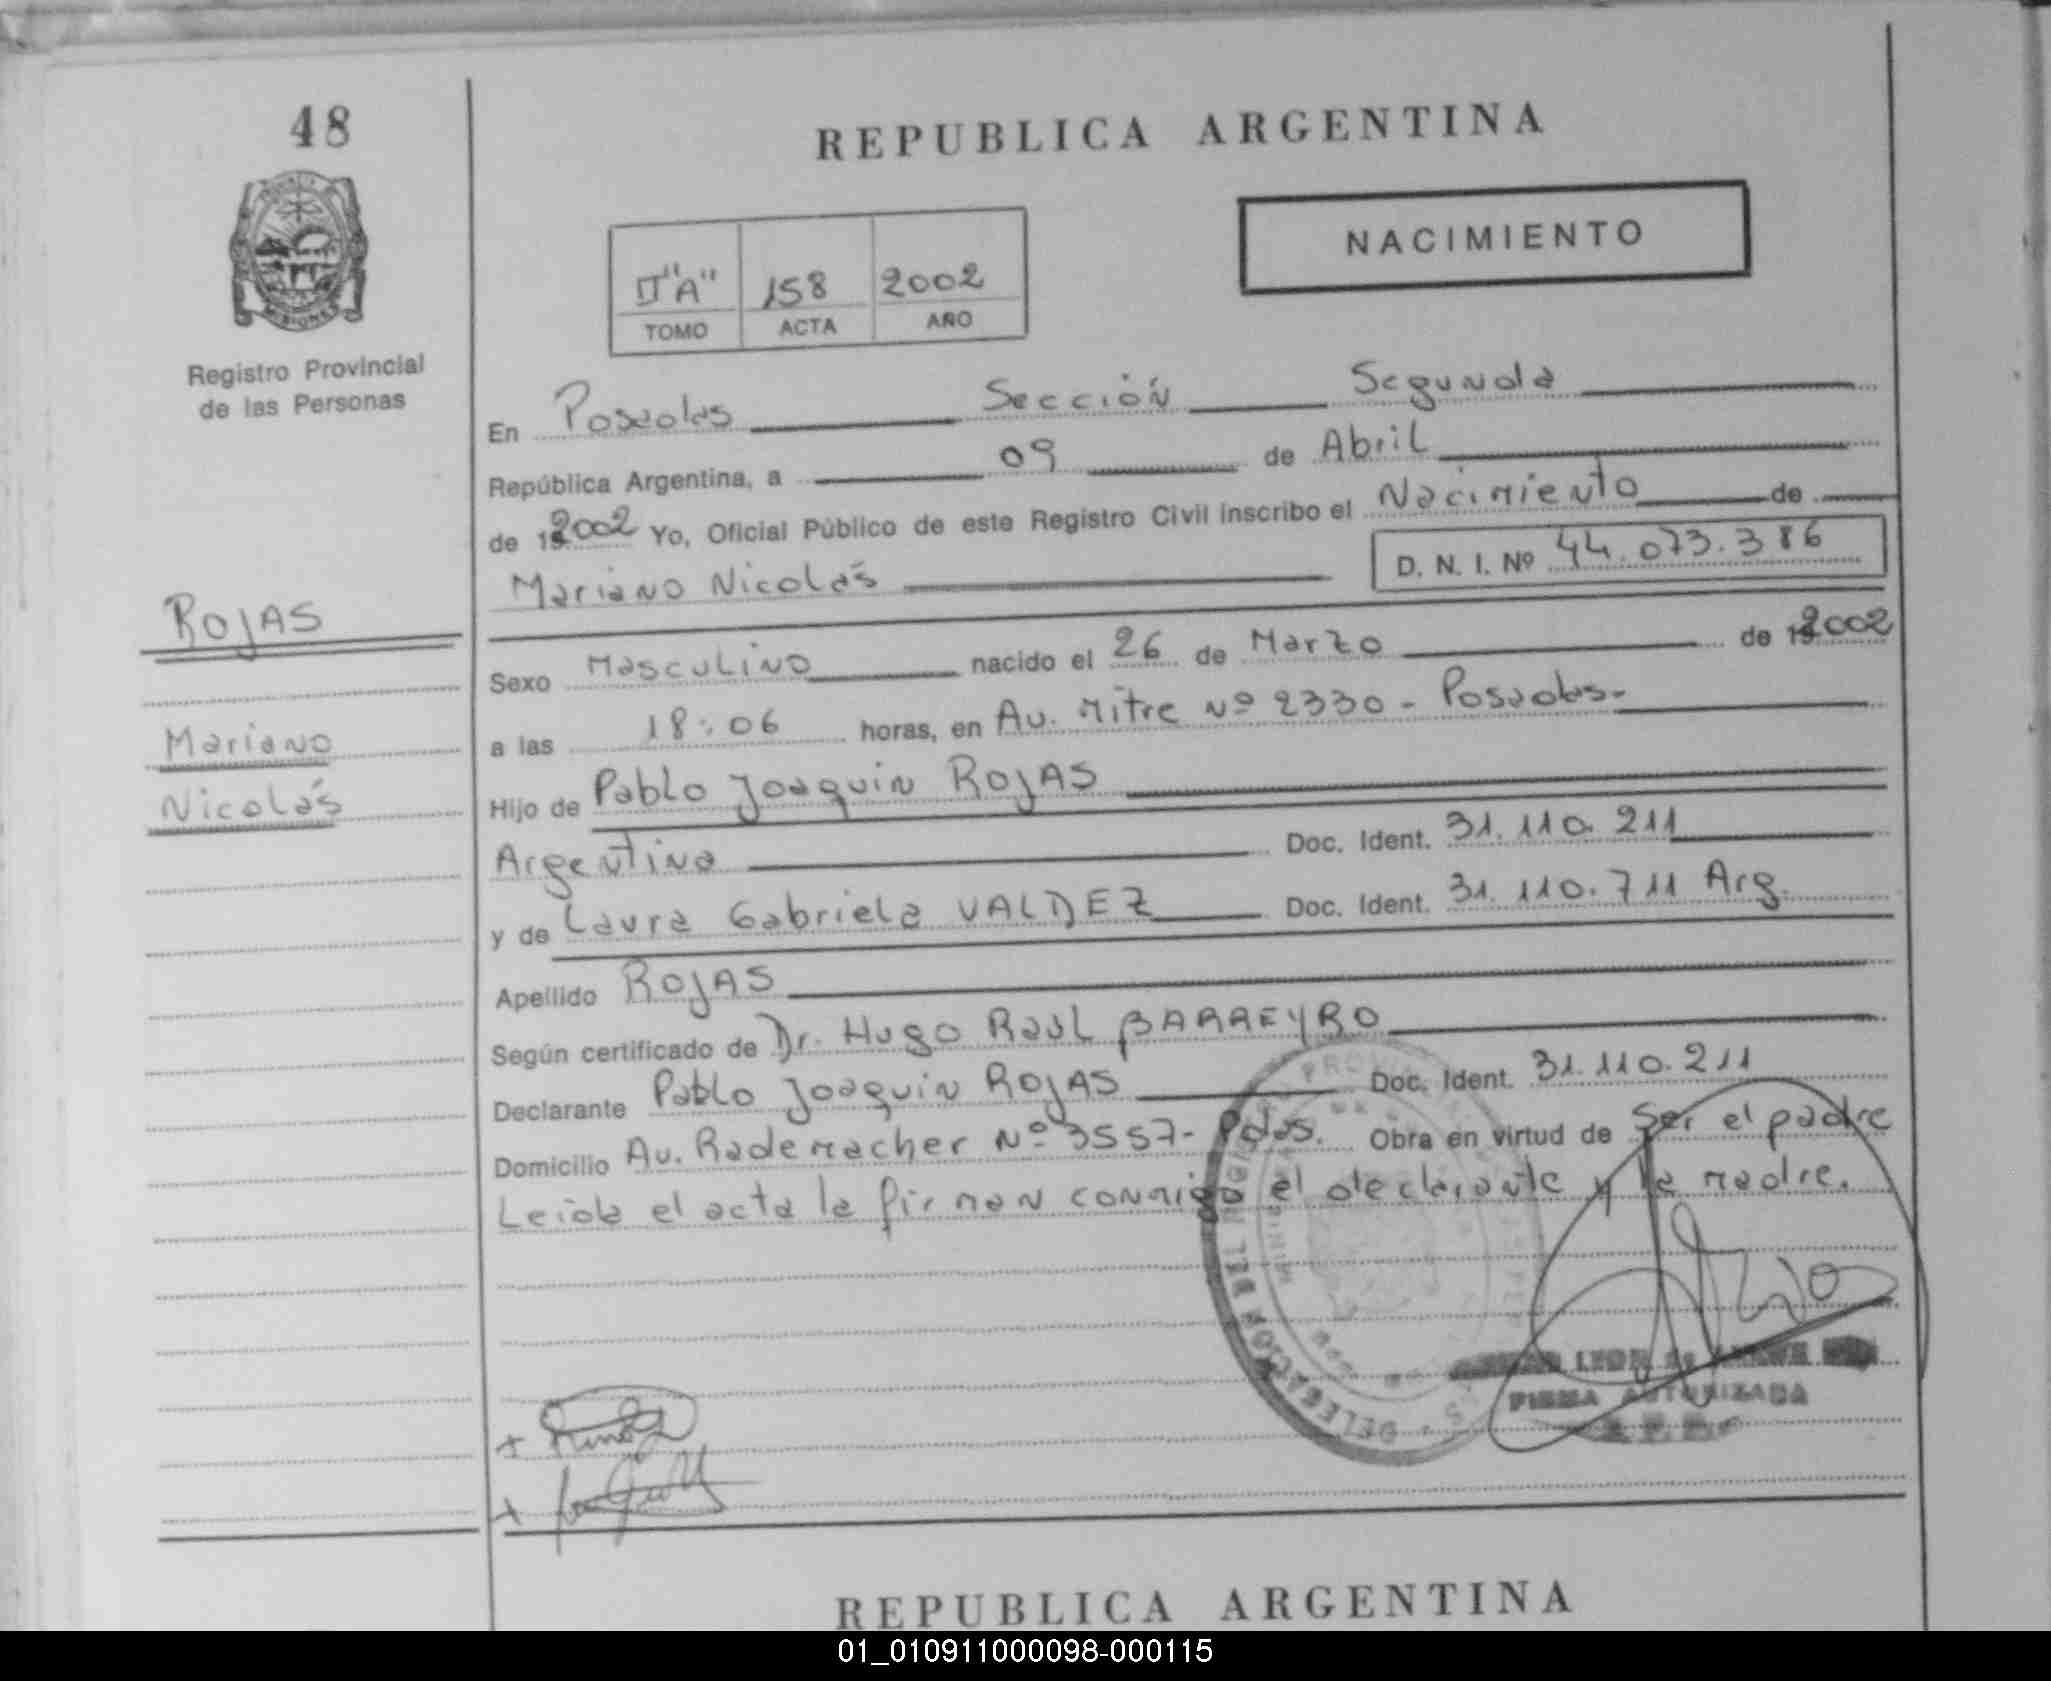 48
REPUBLICA ARGENTINA
NACIMIENTO
"A" 158 2002
TOMO ACTA AÑO
MISIONES
Registro Provincial
de las Personas
En Posadas Sección Segunda
República Argentina, a 09 de Abril
de 192002 Yo, Oficial Público de este Registro Civil inscribo el Nacimiento de
Mariano Nicolás D. N. I. Nº 44.073.386
ROJAS
Mariano
Nicolás
Sexo Masculino nacido el 26 de Marzo de 192002
a las 18:06 horas, en Av. Mitre Nº 2330 - Posadas-
Hijo de Pablo Joaquin ROJAS
Argentino Doc. Ident. 31.110.211
y de Laura Gabriela VALDEZ Doc. Ident. 31.110.711 Arg.
Apellido ROJAS
Según certificado de Dr. Hugo Raul BARREYRO
Declarante Pablo Joaquin ROJAS Doc. Ident. 31.110.211
Domicilio Av. Rademacher Nº 3557- Pdas. Obra en virtud de Ser el padre
Leida el acta la firman conmigo el declarante y la madre.
DELEGACION DEL
LEON de
FIRMA AUTORIZADA
REPUBLICA ARGENTINA
01_010911000098-000115